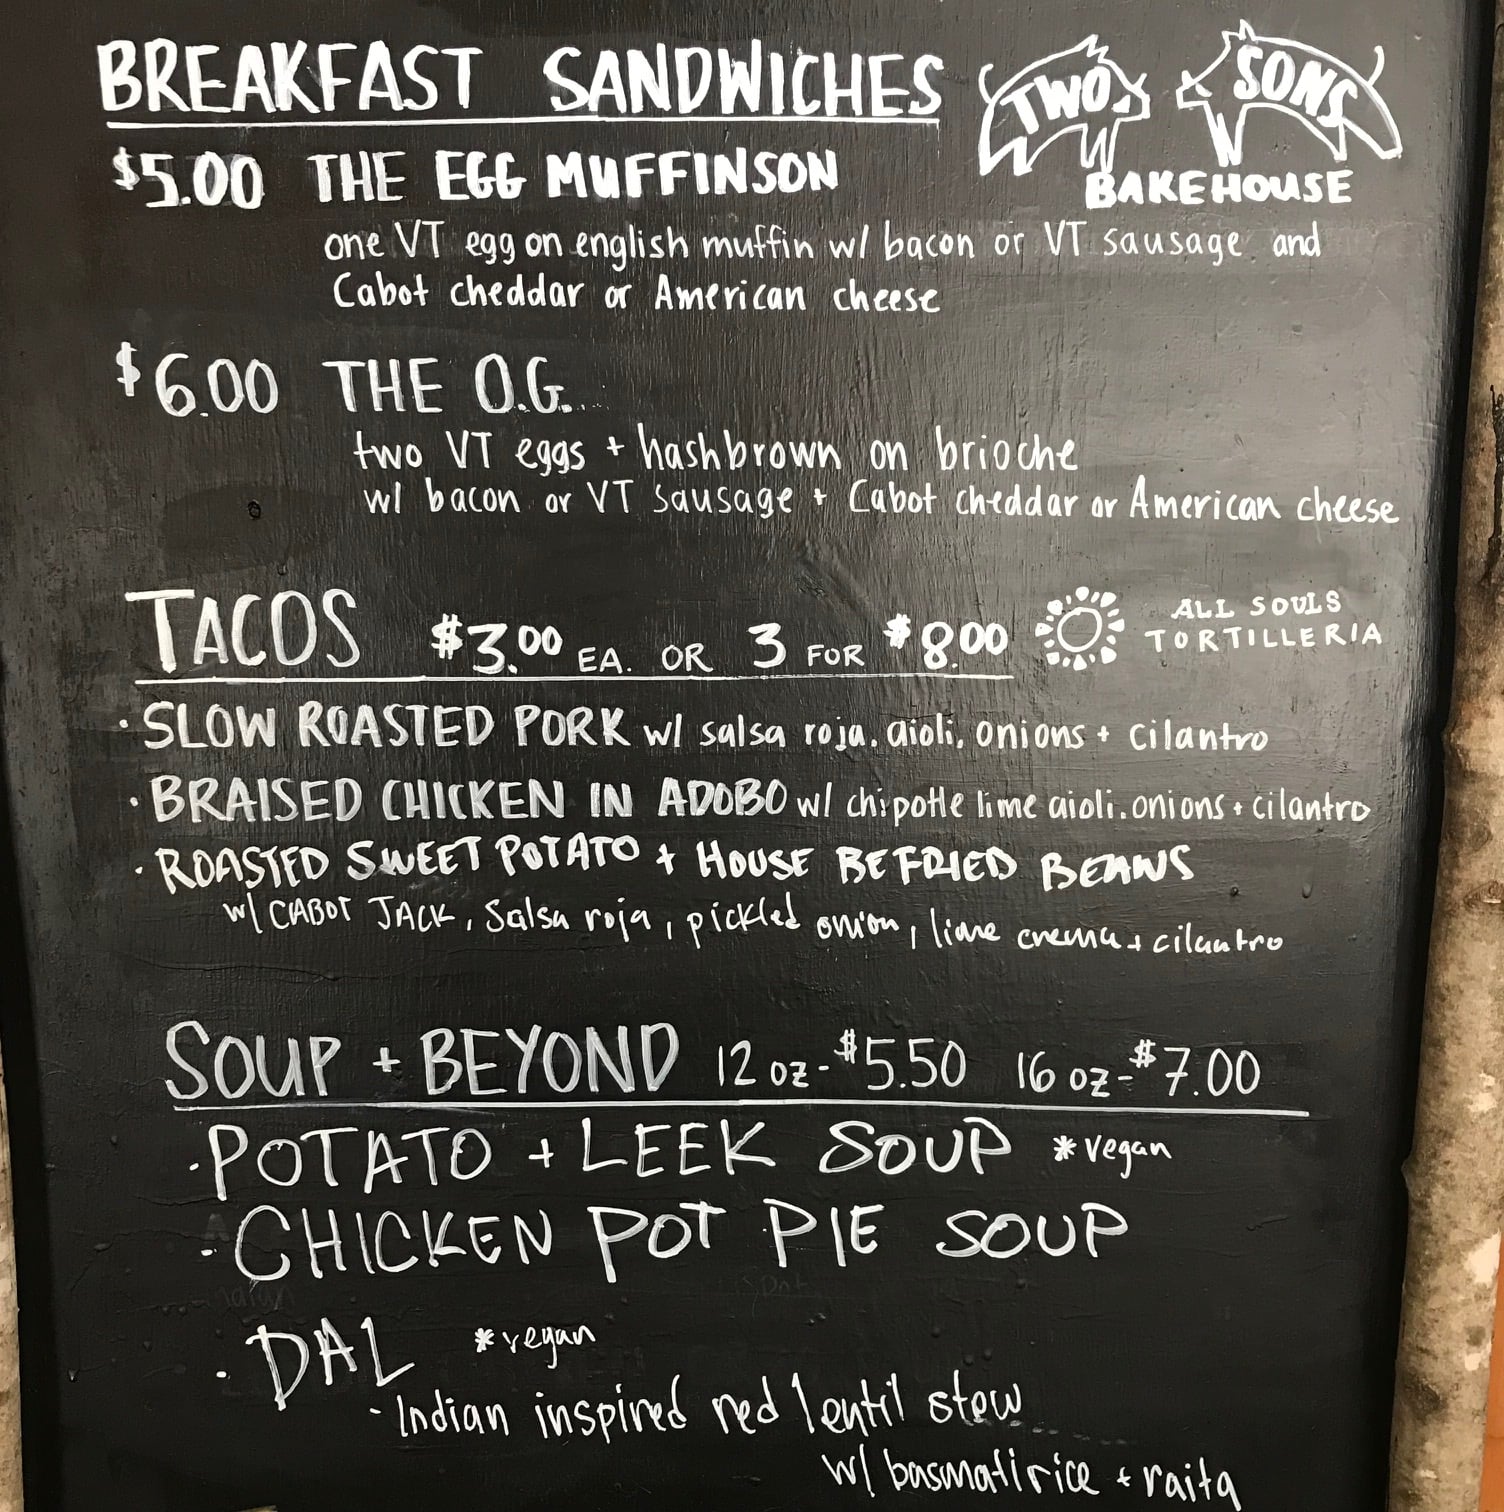 BREAKFAST SANDWICHES
TWO SONS
BAKEHOUSE
$5.00 THE EGG MUFFINSON
one VT egg on english muffin w/ bacon or VT sausage and
Cabot cheddar or American cheese
$6.00 THE O.G.
two VT eggs + hashbrown on brioche
w/ bacon or VT sausage + Cabot cheddar or American cheese
TACOS $3.00 EA. OR 3 FOR $8.00
ALL SOULS
TORTILLERIA
· SLOW ROASTED PORK w/ salsa roja, aioli, onions + cilantro
· BRAISED CHICKEN IN ADOBO w/ chipotle lime aioli, onions + cilantro
· ROASTED SWEET POTATO + HOUSE REFRIED BEANS
w/ CABOT JACK, Salsa roja, pickled onion, lime crema + cilantro
SOUP + BEYOND 12 oz - $5.50 16 oz - $7.00
· POTATO + LEEK SOUP *vegan
· CHICKEN POT PIE SOUP
· DAL *vegan
- Indian inspired red lentil stew
w/ basmati rice + raita